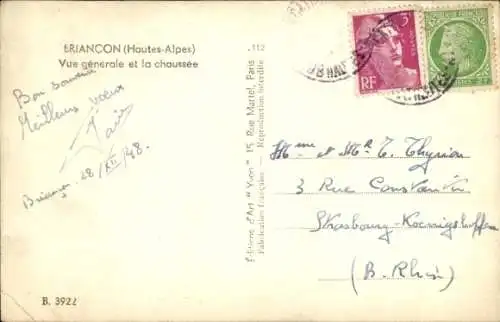 BRIANÇON (Hautes-Alpes)
Vue générale et la chaussée
Bon souvenir
Meilleurs vœux
Briançon 28/XII/48.
B. 3922
112
Éditions d'Art "Yvon" 15, Rue Martel, Paris
Fabrication française - Reproduction interdite
3F
RF
Mme et Mr T. Thyrion
3 Rue Constantin
Strasbourg-Koenigshoffen
(B. Rhin)